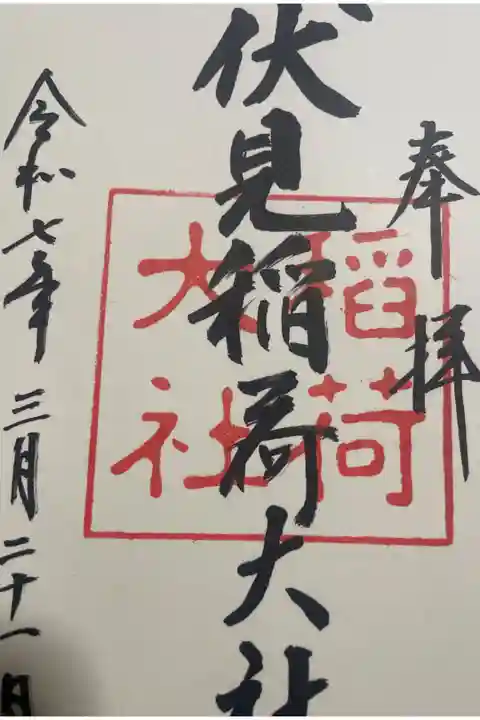 奉拝
伏見稲荷大社
稲荷
大社
令和七年 三月二十一日